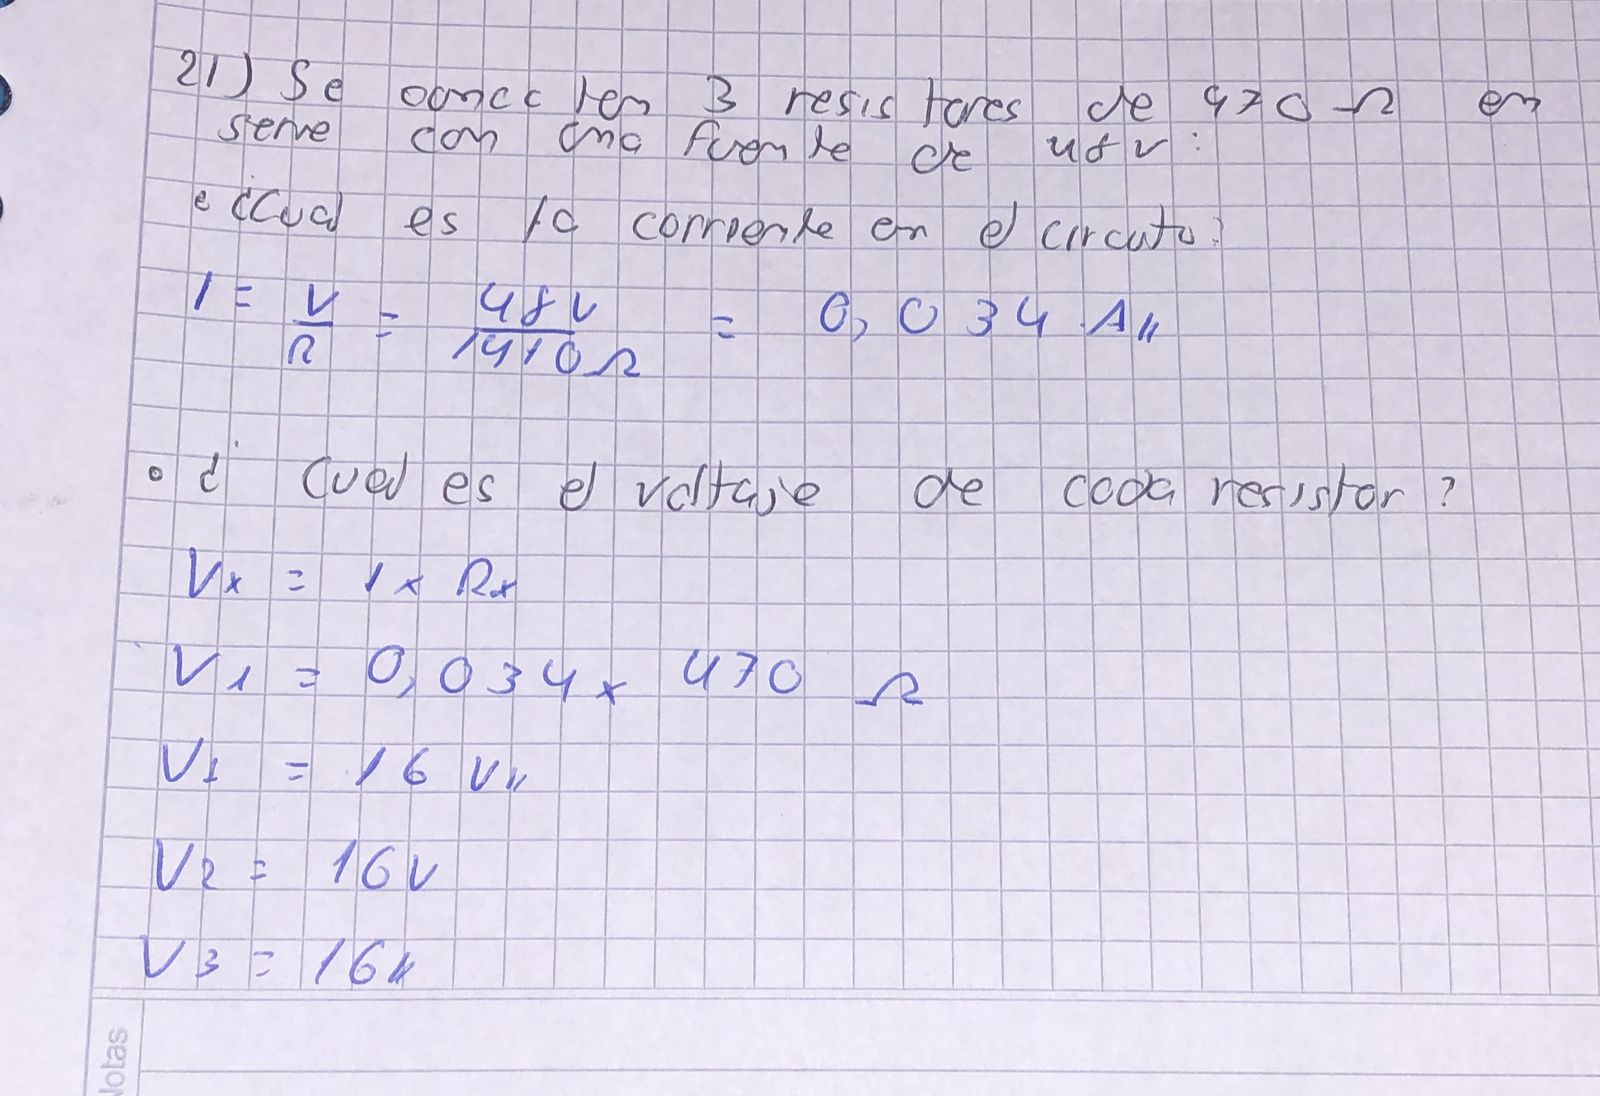 21) Se conecten 3 resistores de 470 Ω en
serie con una fuente de 48 v:
• ¿Cual es la corriente en el circuito?
I = V/R = 48 v/1410 Ω = 0,034 A//
• ¿ Cual es el voltaje de cada resistor?
Vx = I x Rx
V1 = 0,034 x 470 Ω
V1 = 16 v//
V2 = 16 v
V3 = 16//
Notas